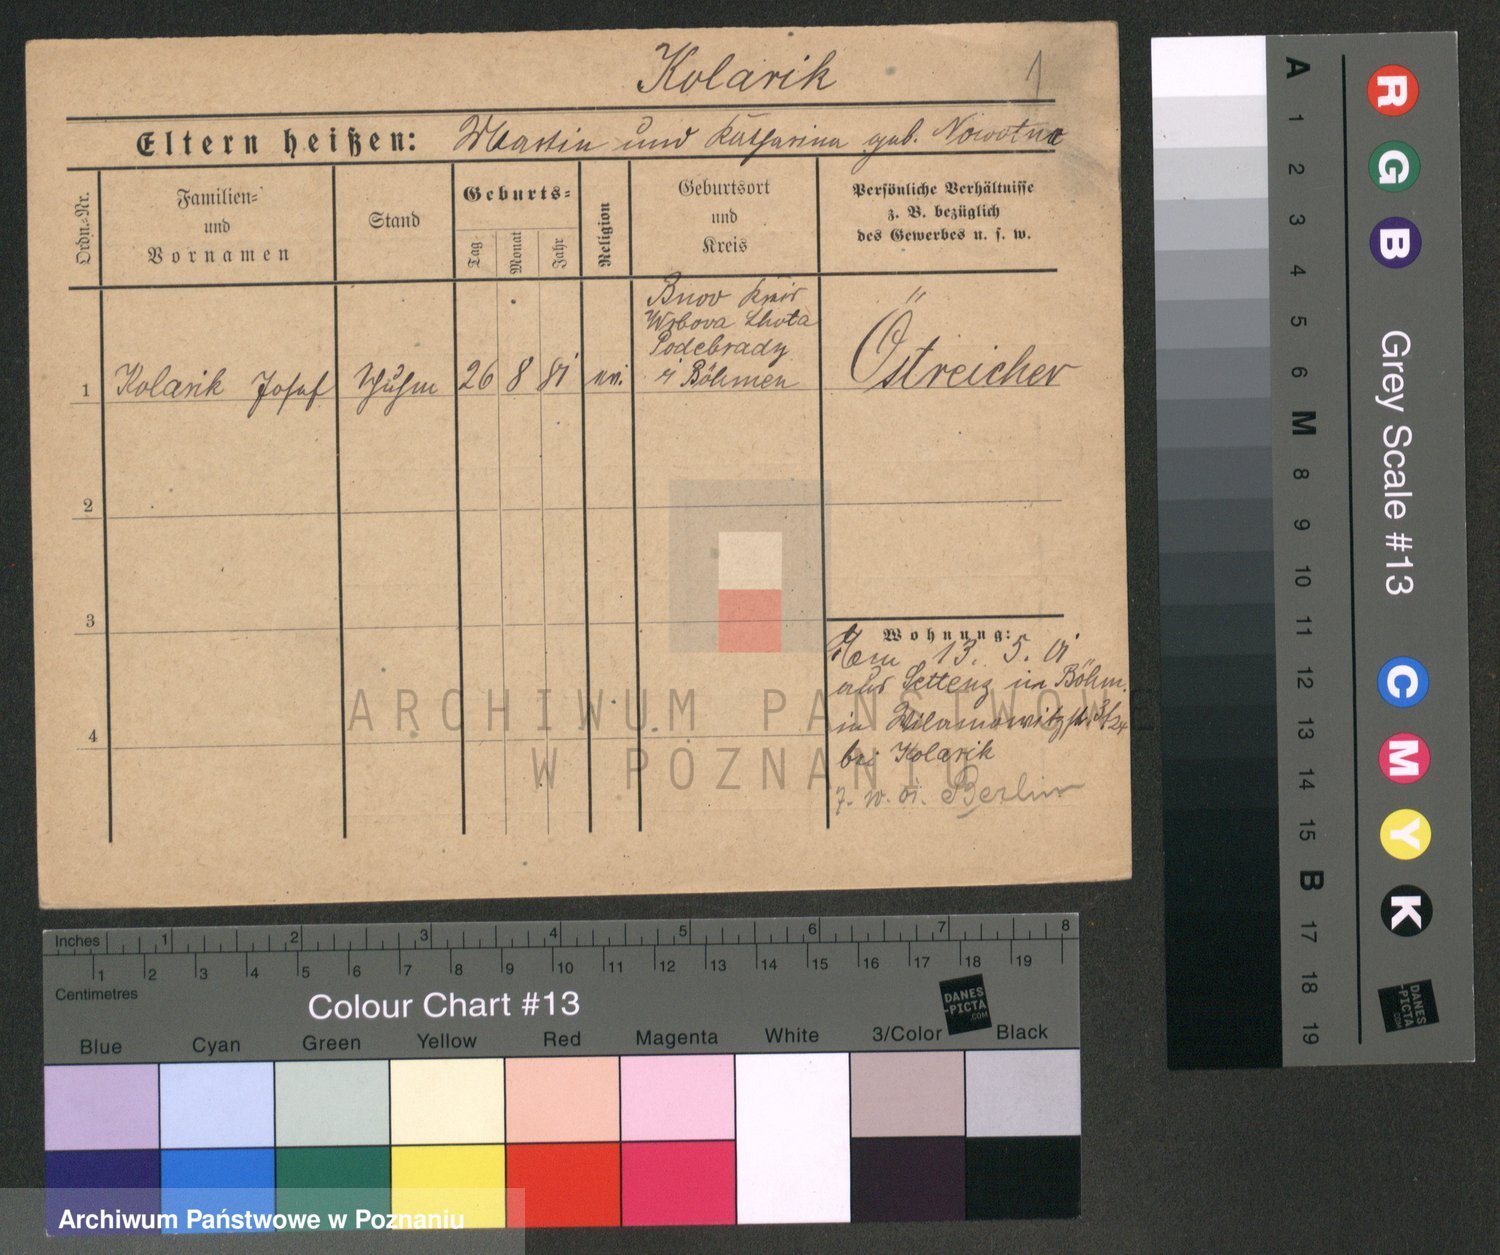 Kolarik
1
Eltern heißen: Martin und Katharina geb. Nowotna
Ordn.-Nr.
Familien- und Vornamen
Stand
Geburts-
Tag
Monat
Jahr
Religion
Geburtsort und Kreis
Persönliche Verhältnisse
z. B. bezüglich
des Gewerbes u. s. w.
Bnov Kreis
Wrbova Lhota
Podebrady
i Böhmen
1 Kolarik Josef 26 8 81 ev. Östreicher
2
3
4
Wohnung:
13. 5. 01
aus Settenz in Böhm.
in
bei Kolarik
Berlin
ARCHIWUM PAŃSTWOWE
W POZNANIU
Inches 1 2 3 4 5 6 7 8
1 2 3 4 5 6 7 8 9 10 11 12 13 14 15 16 17 18 19
Centimetres
Colour Chart #13
DANES
-PICTA
.COM
Blue Cyan Green Yellow Red Magenta White 3/Color Black
Archiwum Państwowe w Poznaniu
A 1 2 3 4 5 6 M 8 9 10 11 12 13 14 15 B 17 18 19
Grey Scale #13
R G B
C M Y K
DANES
-PICTA
.COM